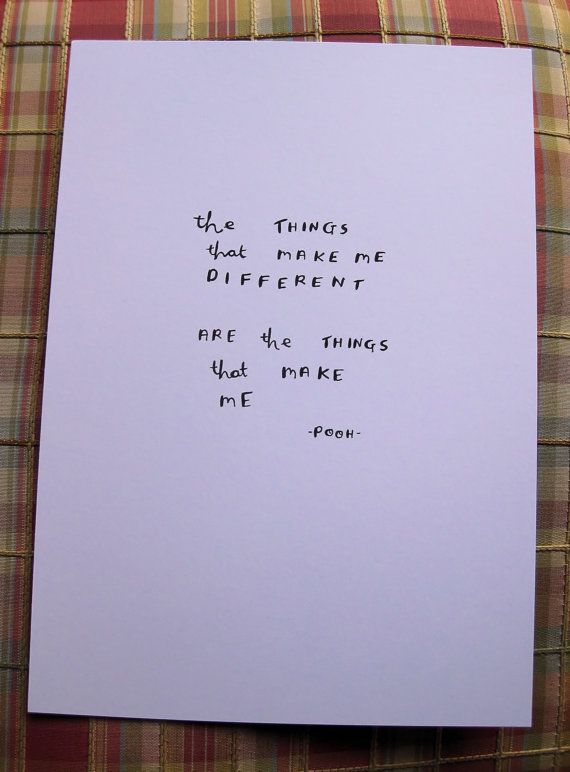 the THINGS
that MAKE ME
DIFFERENT
ARE the THINGS
that MAKE
ME
-POOH-